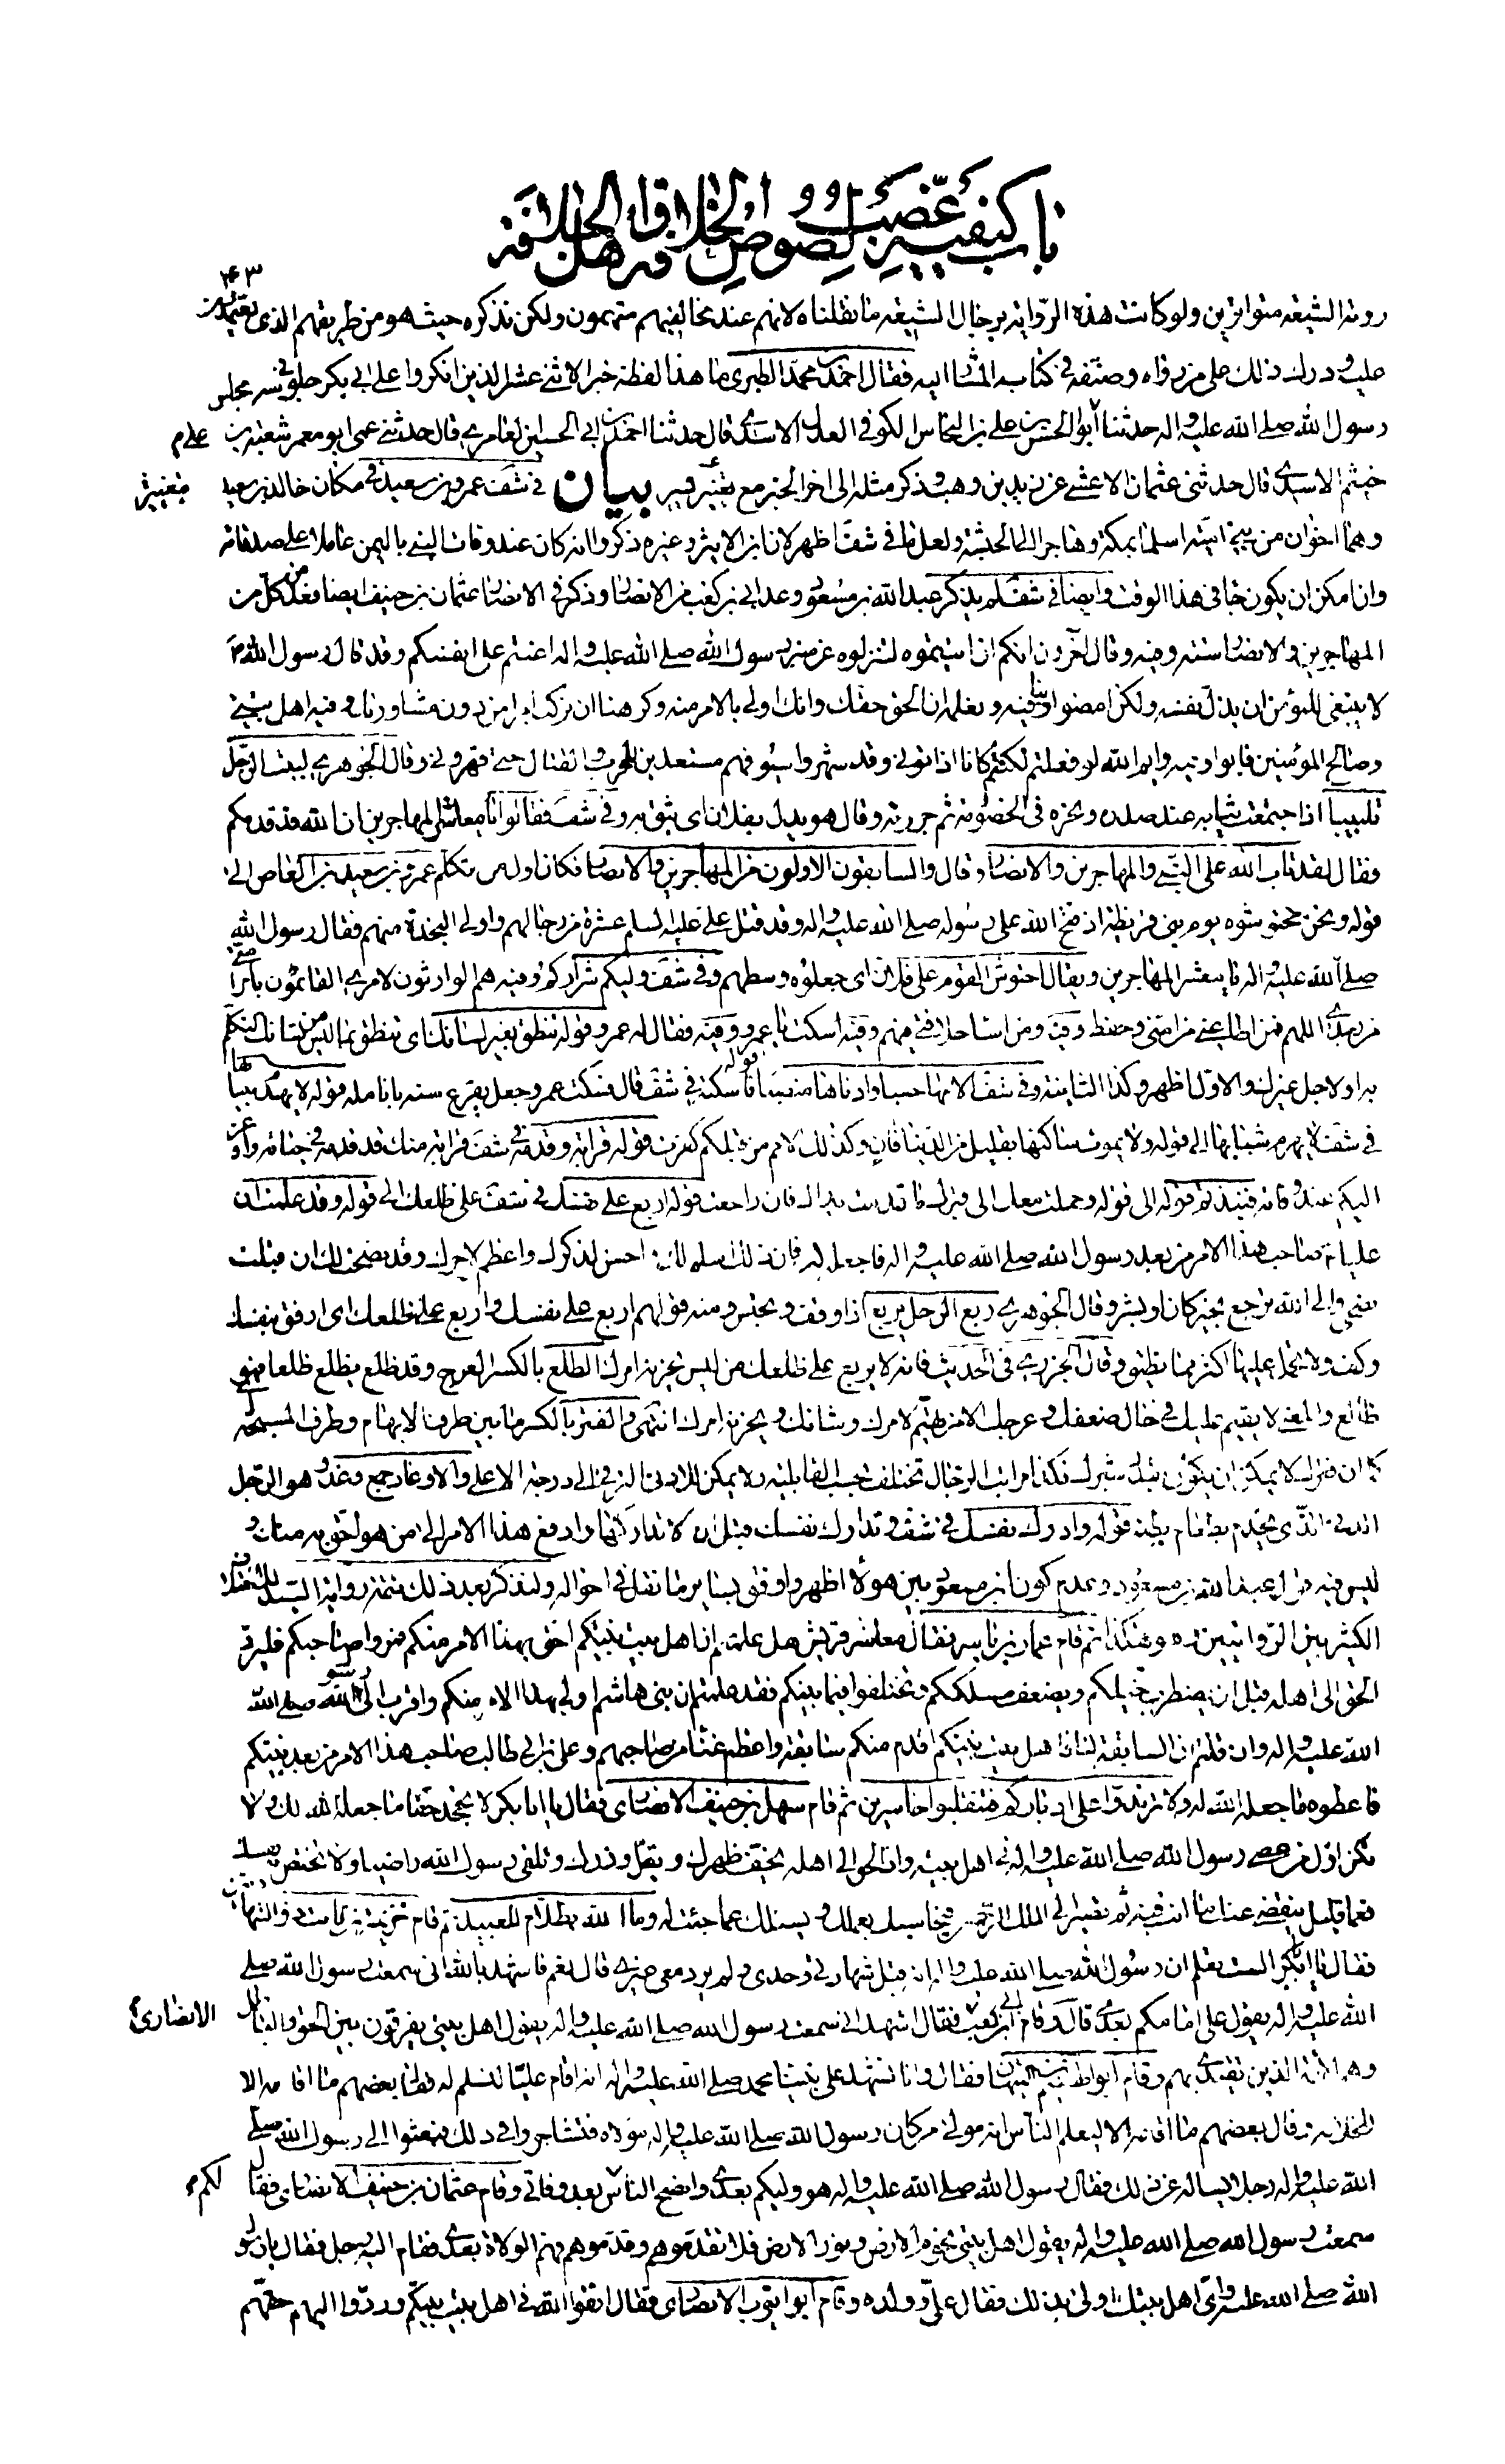 باب كيفية غصب لصوص الخلافة و اهل الجلافة
۴۳
روته الشيعة متواترين ولو كانت هذه الرواية برجال الشيعة ما نقلناه لانهم عند مخالفيهم متهمون ولكن نذكره حيث هو من طريقهم الذى يعتمدون
عليه و درك ذلك على من رواه وصنفه في كتاب المشار اليه فقال احمد بن محمد الطبرى ما هذا لفظه خبر الاثنى عشر الذين انكروا على ابي بكر جلوسه في مجلس
رسول الله صلى الله عليه و اله حدثنا ابو الحسن بن على بن النحاس الكوفي العدل الاسدي قال حدثنا احمد بن ابي الحسين العامري قال حدثنى عمى ابو معمر شعبة بن
خيثم الاسدي قال حدثنى عثمان الاعشى عن زيد بن وهب وذكر مثله الى اخر الخبر مع تغيير يسير بيان في شف عمرو بن سعيد في مكان خالد بن سعيد
وهما اخوان من بني امية اسلما بمكة وهاجرا الى الحبشة ولعل ما في شف اظهر لان ابن الاثير وغيره ذكروا انه كان عند وفات النبي باليمن عاملا على صدقاته
وان امكن ان يكون جاء في هذا الوقت وايضا في شف لم يذكر عبد الله بن مسعود وعد ابي بن كعب من الانصار وذكر في الانصار عثمان بن حنيف ايضا فعد كل من
المهاجرين والانصار ستة وفيه وقال آخرون انكم ان اتيتموه لتنزلوه عن منبر رسول الله صلى الله عليه و اله اعنتم على انفسكم وقد قال رسول الله ص
لا ينبغي للمؤمن ان يذل نفسه ولكن امضوا بنا وفيه ونعلمه ان الحق حقك وانك اولى بالامر منه وكرهنا ان نركب امرا من دون مشاورتك وفيه اهل بيتي
وصالح المؤمنين فابوا وفيه وايم الله لو فعلتم لكنتم كانا اذ اتونى وقد شهروا سيوفهم مستعدين للحرب والقتال حتى قهروني وقال الجوهري لببت الرجل
تلبيبا اذا جمعت ثيابه عند صدره ونحره في الخصومة ثم جررته وقال هو يدل بفلان اى يثق به وفي شف فقالوا يا معاشر المهاجرين ان الله قد قدمكم
فقال لقد تاب الله على النبي والمهاجرين والانصار وقال والسابقون الاولون من المهاجرين والانصار فكان اول من تكلم عمرو بن سعيد بن العاص الى
قوله ونحن محتوشوه يوم بني قريظة اذ فتح الله على رسوله صلى الله عليه و اله وقد قتل على عليه السلم عشرة من رجالهم واولى النجدة منهم فقال رسول الله
صلى الله عليه و اله يا معشر المهاجرين ويقال احتوش القوم على فلان اى جعلوه وسطهم وفي شف وليكم شراركم وفيه هم الوارثون لامري القائمون بامر
من بعدي اللهم فمن اطاعني من امتى وحفظ وفيه ومن اساء خلافتي فيهم وفيه اسكت يا عمرو وفيه فقال له عمرو وقوله تنطق بغير لسانك اى تنطق بما ليس من شانك التكلم
به او لاجل غيرك والاول اظهر وكذا الثانية وفي شف الأمها حسبا وادناها منصبا قوله فاسكته في شف قال فسكت عمر وجعل يقرع سنه بانامله قوله لا يهتك بها
في شف لا يهرم شبابها الى قوله ولا يموت ساكنها بقليل من الدنيا فان وكذلك الامم من قبلكم كفرت قوله قرابة وقدمة في شف قرابة منك قد قدمه في حياته واوعز
اليكم عند وفاته فنبذتم قوله الى قوله وحملت معك الى قبرك ما قدمت يداك فان راجعت قوله اربع على نفسك في شف على ظلعك الى قوله وقد علمت ان
عليا صاحب هذا الامر من بعد رسول الله صلى الله عليه و اله فاجعله له فان ذلك اسلم لك احسن لذكرك واعظم لاجرك وقد نصحت لك ان قبلت
نصحي والى الله ترجع بخير كان او بشر وقال الجوهري ربع الرجل يربع اذا وقف و تحبس ومنه قولهم اربع على نفسك واربع على ظلعك اى ارفق بنفسك
وكف ولا تحمل عليها اكثر مما تطيق وقال الجزري في الحديث فانه لا يربع على ظلعك من ليس يحزنه امرك الظلع بالكسر العرج وقد ظلع يظلع ظلعا فهو
ظالع والمعنى لا يقيم عليك في حال ضعفك وعرجك الا من يهتم لامرك وشانك ويحزنه امرك انتهى والفتر بالكسر ما بين طرف الابهام وطرف المسبحة
كما ان فترك لا يمكن ان يكون بقدر شبرك فكذا مراتب الرجال تختلف بحسب القابلية ولا يمكن للادنى الترقي الى درجة الاعلى والاوغاد جمع وغد وهو الرجل
الدنى الذى يخدم بطعام بطنه قوله وادرك نفسك في شف وتدارك نفسك قبل ان لا تداركها وادفع هذا الامر الى من هو احق به منك و
ليس فيه قول عبد الله بن مسعود وعدم كون ابن مسعود بين هؤلاء اظهر واوفق بساير ما نقل في احواله ولنذكر بعد ذلك تتمة رواية السيد للاختلاف
الكثير بين الروايتين وهكذا ثم قام عمار بن ياسر فقال معاشر قريش هل علمتم ان اهل بيت نبيكم احق بهذا الامر منكم فمروا صاحبكم فليرد
الحق الى اهله قبل ان يضطرب حبلكم ويضعف مسلككم وتختلفوا فيما بينكم فقد علمتم ان بني هاشم اولى بهذا الامر منكم واقرب الى رسول الله صلى الله
الله عليه و اله وان قلتم ان السابقة لنا فاهل بيت نبيكم اقدم منكم سابقة واعظم غناء من صاحبهم وعلى بن ابي طالب صاحب هذا الامر من بعد نبيكم
فاعطوه ما جعله الله له ولا ترتدوا على ادباركم فتنقلبوا خاسرين ثم قام سهل بن حنيف الانصارى فقال يا ابا بكر لا تجحد حقا ما جعله الله لك ولا
تكن اول من عصى رسول الله صلى الله عليه و اله في اهل بيته واد الحق الى اهله يخف ظهرك ويقل وزرك وتلقى رسول الله راضيا ولا تختص به نفسك
فعما قليل ينقضى عنك ما انت فيه ثم تصير الى الملك الرحمن فيحاسبك بعملك ويسئلك عما جئت له وما الله بظلام للعبيد ثم قام خزيمة بن ثابت ذو الشهادتين
فقال يا ابا بكر الست تعلم ان رسول الله صلى الله عليه و اله قبل شهادتي وحدى ولم يرد معي غيري قال نعم قال فاشهد بالله انى سمعت رسول الله صلى
الله عليه و اله يقول على امامكم بعدى قال وقام ابي بن كعب الانصارى فقال اشهد انى سمعت رسول الله صلى الله عليه و اله يقول اهل بيتي يفرقون بين الحق والباطل
وهم الائمة الذين يقتدى بهم وقام ابو الهيثم بن التيهان فقال وانا نشهد على نبينا محمد صلى الله عليه و اله انه اقام عليا لنسلم له فقال بعضهم ما اقامه الا
للخلافة وقال بعضهم ما اقامه الا ليعلم الناس انه مولى من كان رسول الله صلى الله عليه و اله مولاه فتشاجروا في ذلك فبعثوا الى رسول الله صلى
الله عليه و اله رجلا يساله عن ذلك فقال رسول الله صلى الله عليه و اله هو وليكم بعدى وانصح الناس لكم بعد وفاتي وقام عثمان بن حنيف الانصارى فقال
سمعت رسول الله صلى الله عليه و اله يقول اهل بيتي نجوم الارض ونور الارض فلا تقدموهم وقدموهم فهم الولاة بعدى فقام اليه رجل فقال يا رسول
الله صلى الله عليه و اى اهل بيتك اولى بذلك فقال على وولده وقام ابو ايوب الانصارى فقال اتقوا الله في اهل بيت نبيكم وردوا اليهم حقهم